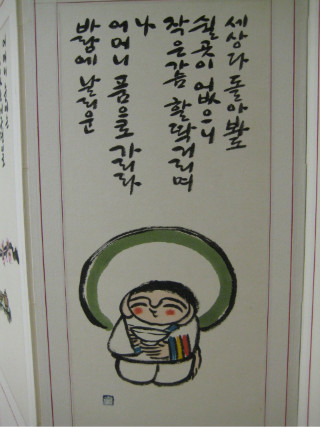 세상 다 돌아봐도
쉴 곳이 없으니
작은 가슴 할딱거리며
나
어머니 품으로 가리라
바람에